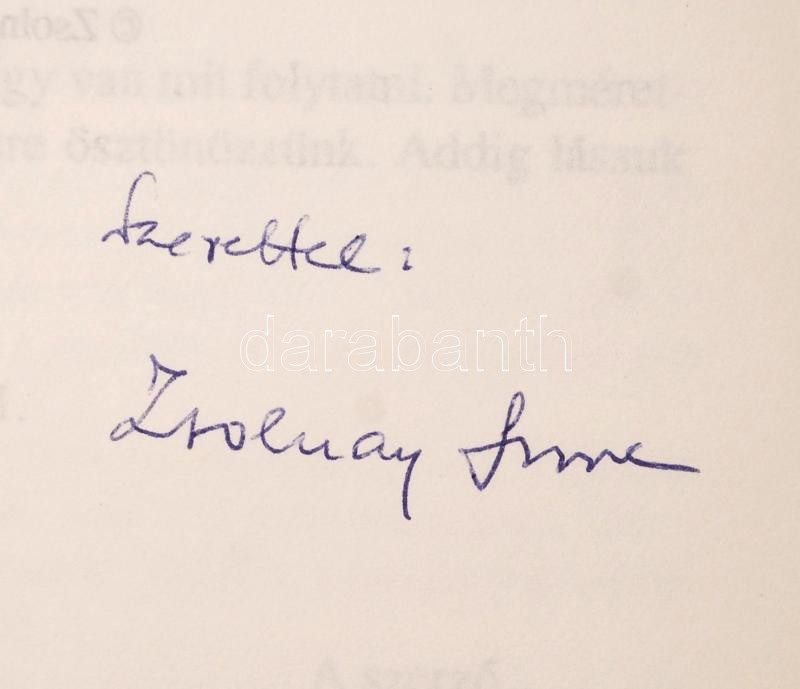 © Zsoln
gy van mit folytatni. Megméret-
re ösztönözzünk. Addig lássuk
Szeretettel:
darabanth
Zsolnay Imre
A szerző